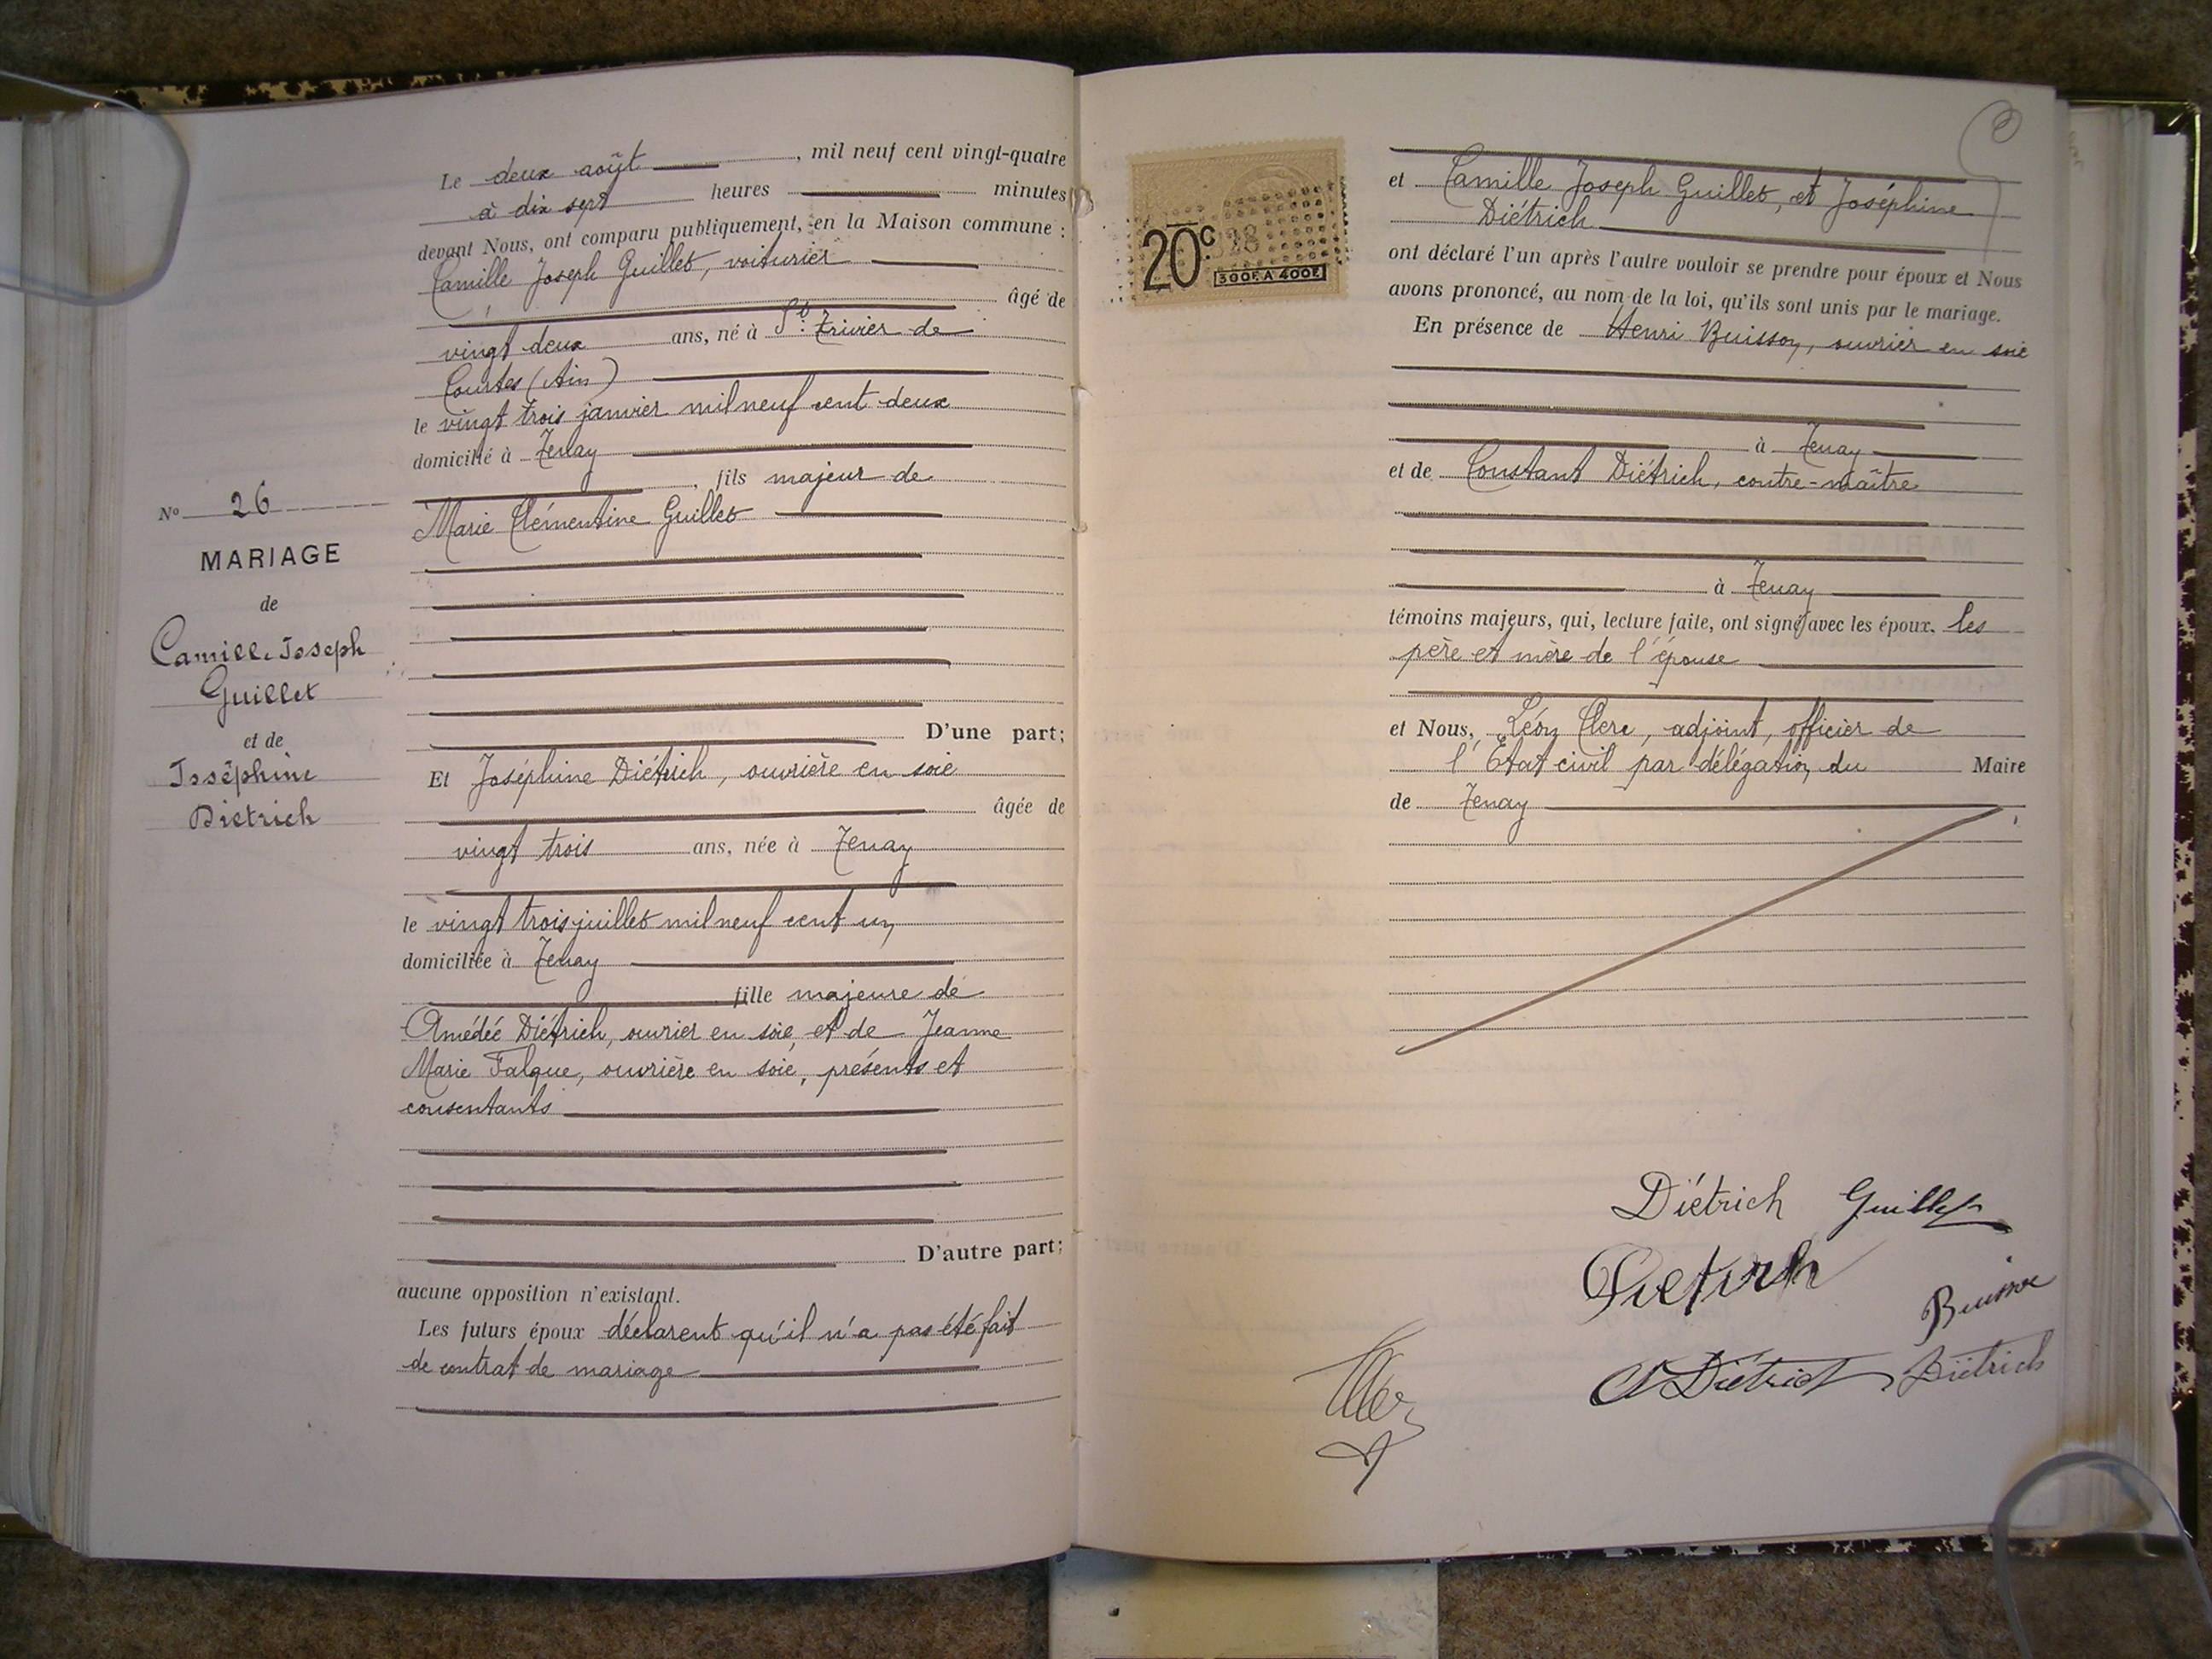 Le deux août, mil neuf cent vingt-quatre
à dix sept heures minutes
devant Nous, ont comparu publiquement, en la Maison commune :
Camille Joseph Guillet, voiturier
âgé de
vingt deux ans, né à St. Trivier de
Courtes (Ain)
le vingt trois janvier mil neuf cent deux
domicilié à Tenay
, fils majeur de
Marie Clémentine Guillet
D'une part;
Et Joséphine Diétrich, ouvrière en soie
âgée de
vingt trois ans, née à Tenay
le vingt trois juillet mil neuf cent un
domiciliée à Tenay
fille majeure de
Amédée Diétrich, ouvrier en soie, et de Jeanne
Marie Falque, ouvrière en soie, présents et
consentants
D'autre part;
aucune opposition n'existant.
Les futurs époux déclarent qu'il n'a pas été fait
de contrat de mariage
No 26
MARIAGE
de
Camille Joseph
Guillet
et de
Joséphine
Diétrich
20c
300F. A 400F.
et Camille Joseph Guillet, et Joséphine
Diétrich
ont déclaré l'un après l'autre vouloir se prendre pour époux et Nous
avons prononcé, au nom de la loi, qu'ils sont unis par le mariage.
En présence de Henri Buisson, ouvrier en soie
à Tenay
et de Constant Diétrich, contre-maître
à Tenay
témoins majeurs, qui, lecture faite, ont signé avec les époux, les
père et mère de l'épouse
et Nous, Léon Clerc, adjoint, officier de
l'Etat civil par délégation du Maire
de Tenay
Diétrich Guillet
Dietrich
Buisson
Diétrich Diétrich